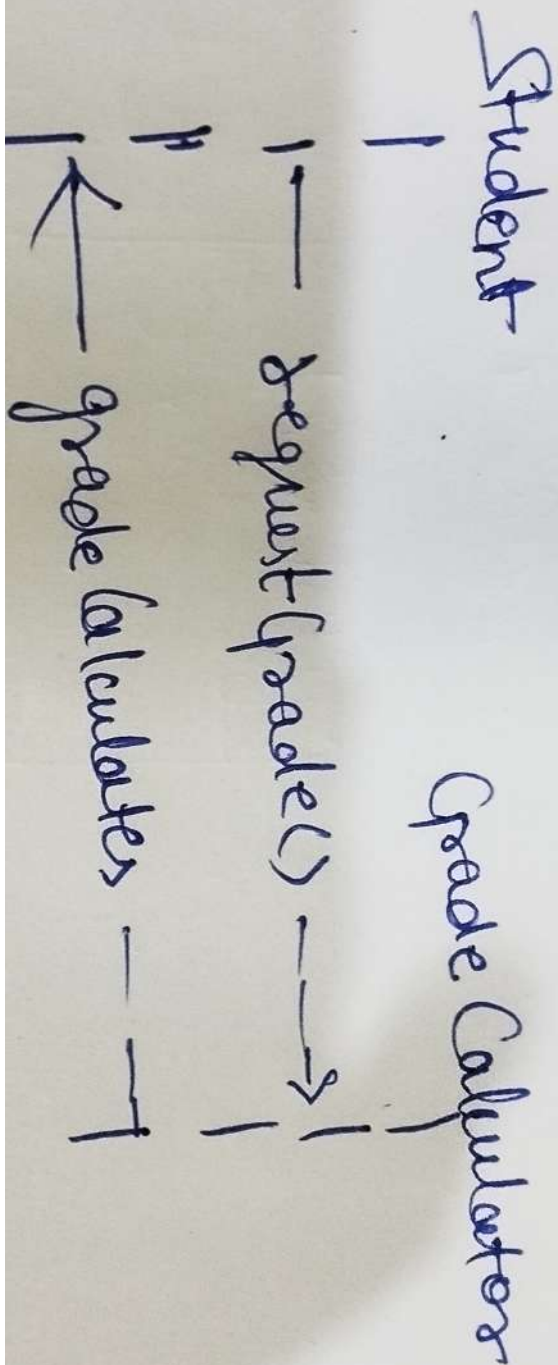 Student Grade Calculator
requestGrade()
gradeCalculates